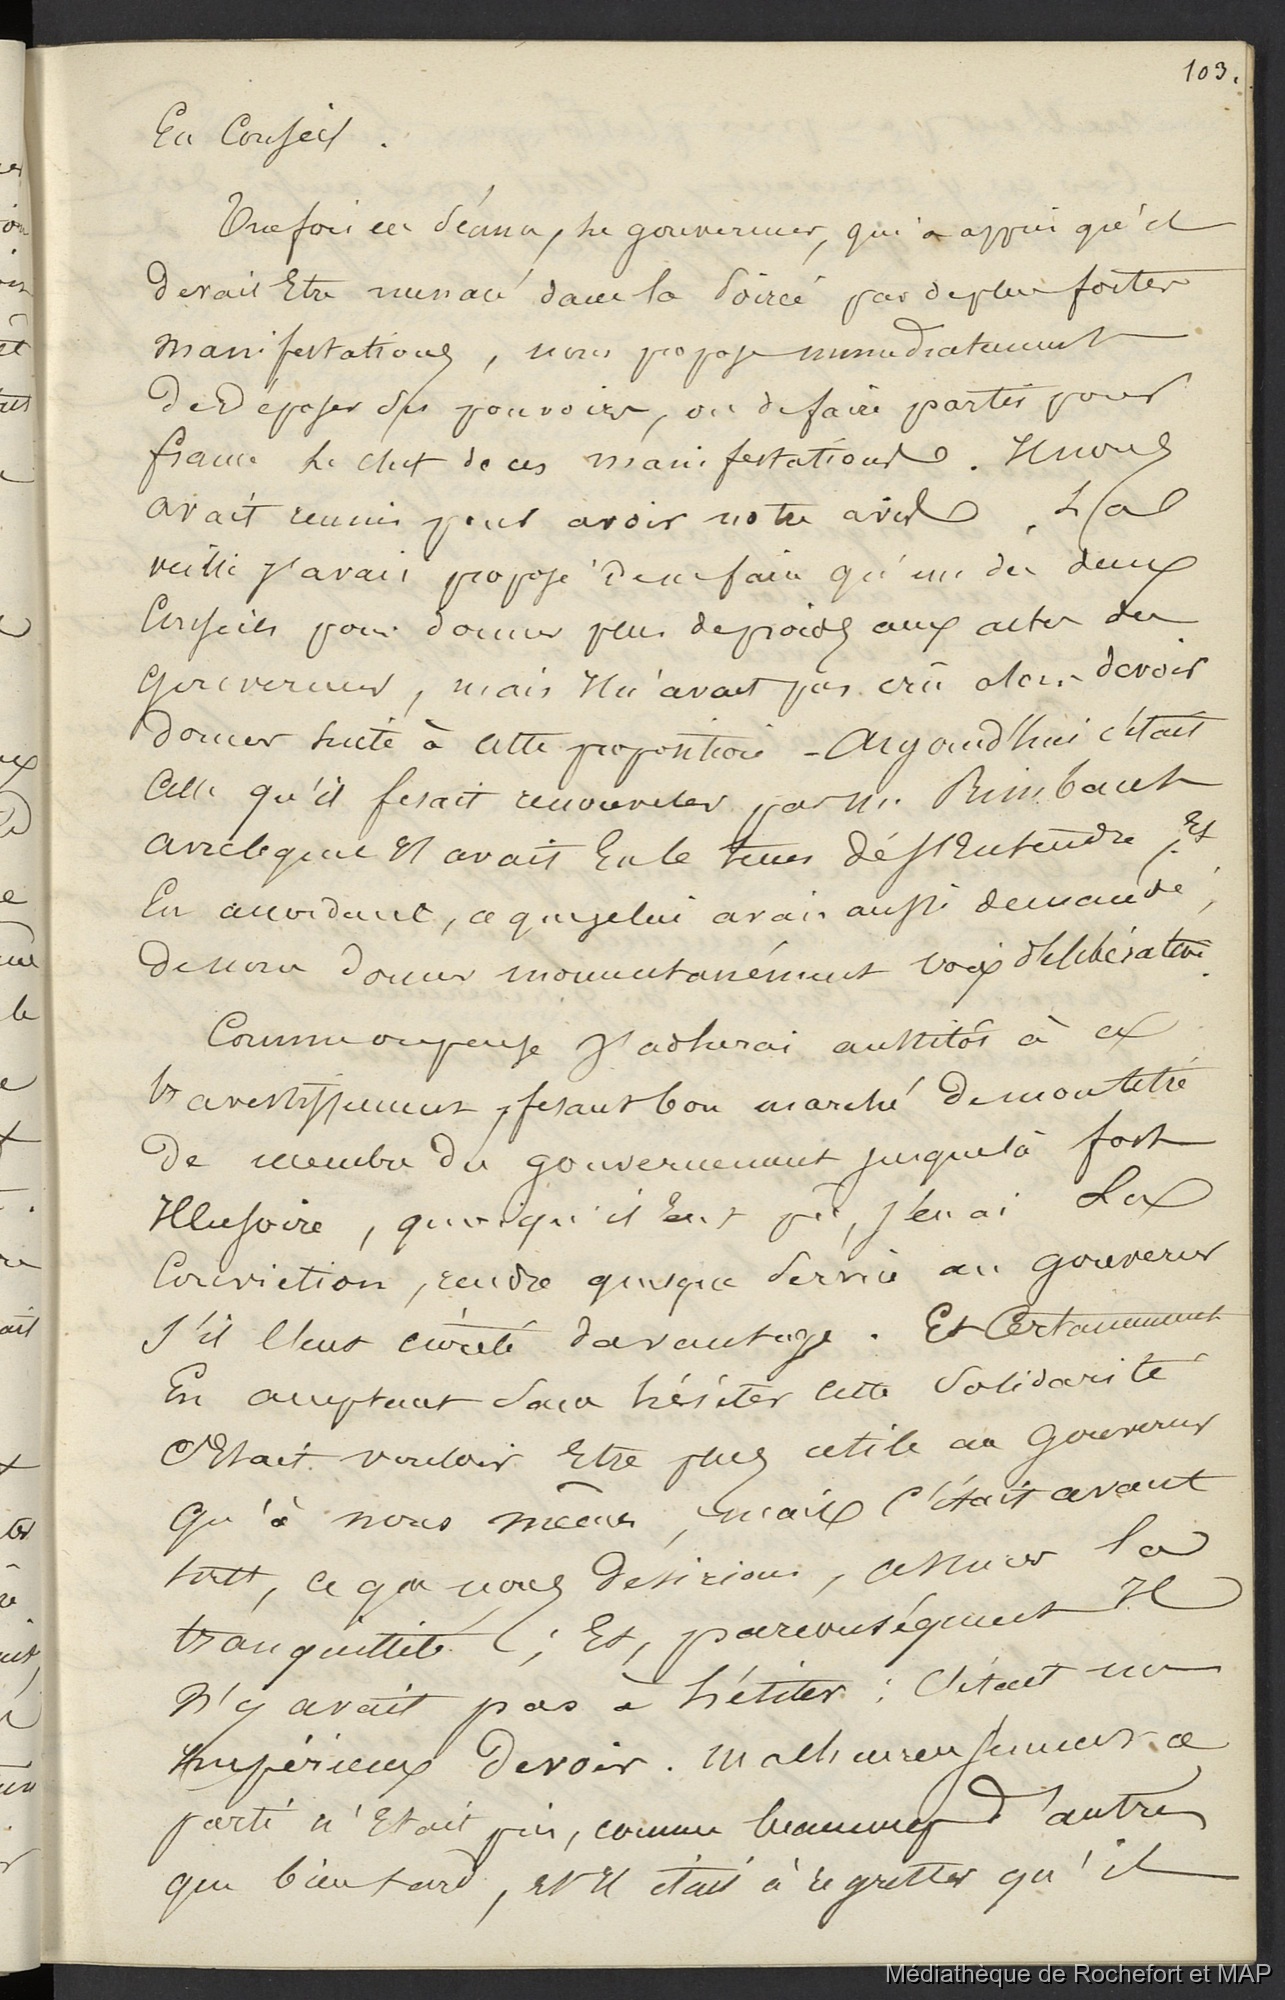 103.
En Conseil.
Une fois en séance, le gouverneur, qui a appris qu'il
devait Etre menacé dans la soirée par de plus fortes
manifestations, nous propose immediatement
de déposer ses pouvoirs, ou de faire partir pour
france le chef de ces manifestations. Il nous
avait reunis pour avoir notre avis. La
veille j'avais proposé de ne faire qu'un des deux
Conseils pour donner plus de poids aux actes du
gouverneur, mais Il n'avait pas crû alors devoir
donner suite à cette proposition - Aujourd'hui c'était
Celle qu'il fesait renouveler par Mr. Rimbault
avec lequel Il avait Eu le tems de s'Entendre, Et
En accordant, ce que je lui avais aussi demandé,
de nous donner momentanément voix délibérative.
Comme on pense j'adherai aussitôt à ce
travestissement, fesant bon marché de mon titre
de membre du gouvernement jusque là fort
Illusoire, quoiqu'il Eut pû, j'en ai La
Conviction, rendre quelque service au gouverneur
s'il l'eut écouté davantage. Et Certainement
En acceptant sans hésiter cette solidarité
C'Etait vouloir Etre plus utile au gouverneur
Qu'à nous mêmes, mais c'était avant
tout, ce que nous désirions, assurer la
tranquillité; Et, par conséquent Il
n'y avait pas à hésiter: C'était un
Impérieux devoir. Malheureusement ce
parti n'Etait pris, comme beaucoup d'autres
que bien tard, et Il était à regretter qu'il
Médiathèque de Rochefort et MAP